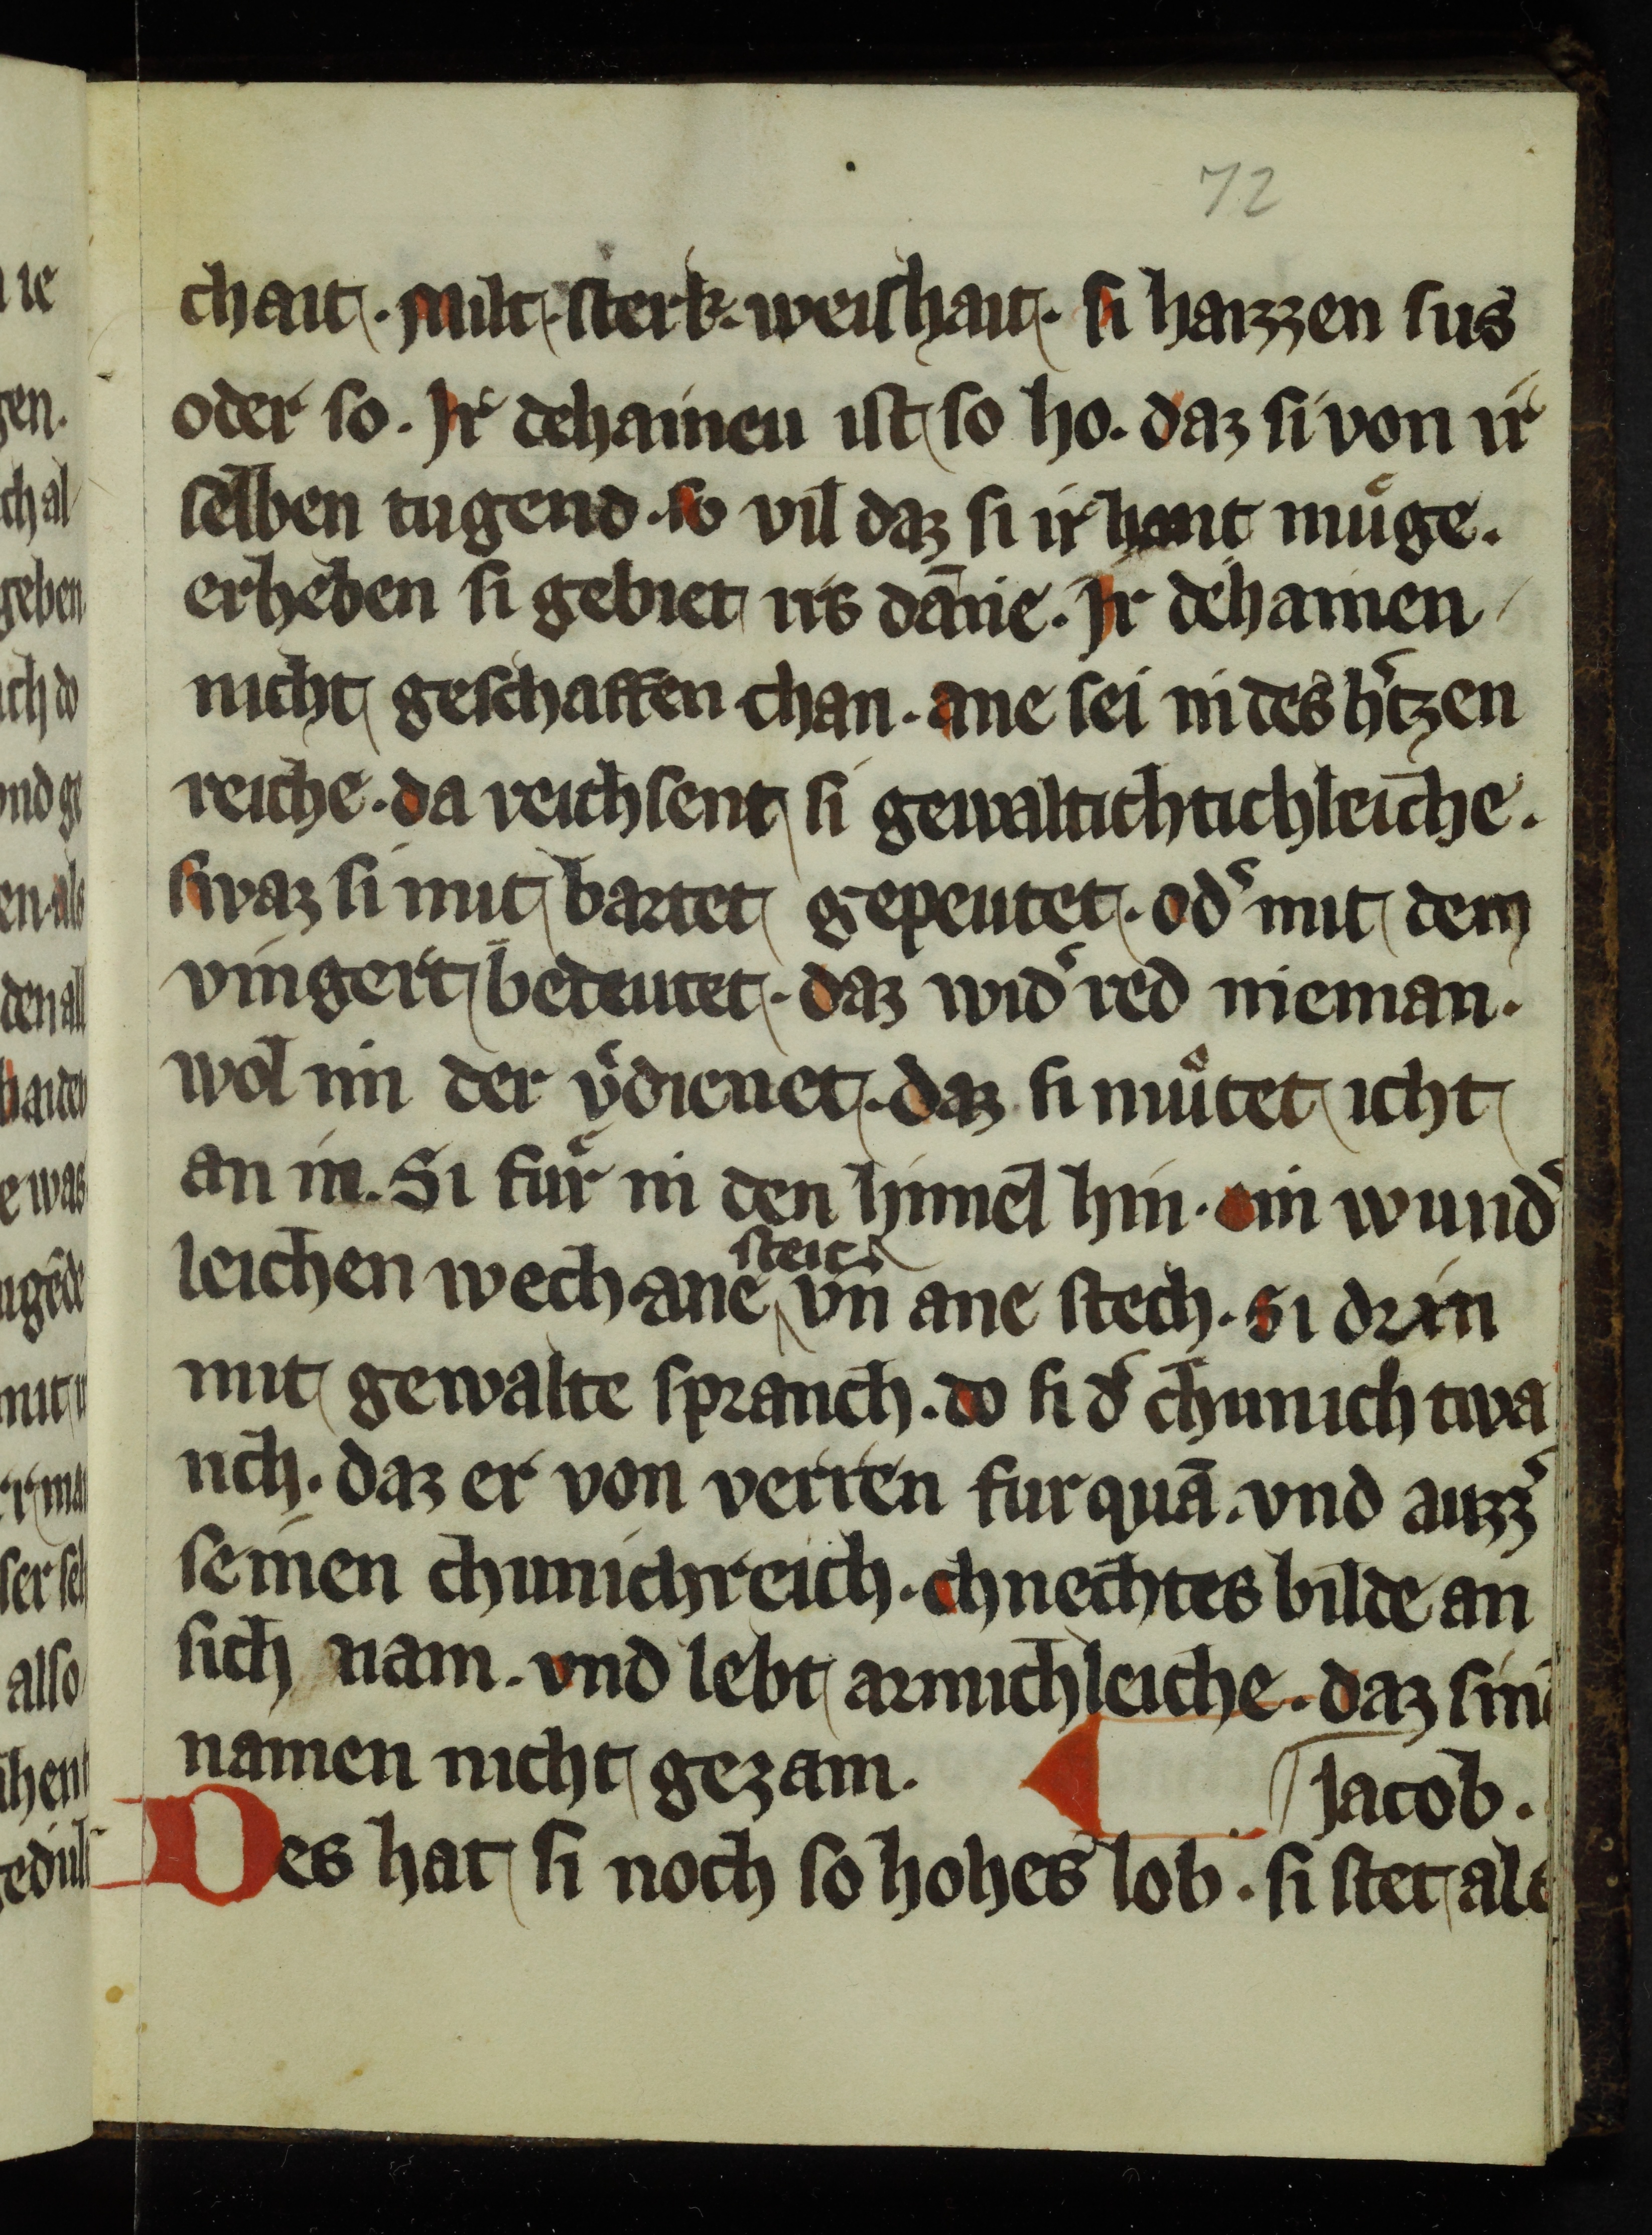 72
chait. Milt. sterk. weishait. si haizzen sus
oder so. Ir dehaineu ist so ho. daz si von ir
selben tugend. so vil daz si ir hant muͤge.
erheben si gebiet irs dānie. Ir dehainen
nicht geschaffen chan. ane sei in des h᷑tzen
reiche. da reichsent si gewaltichtichleiche.
swaz si mit bartet gepeutet. od᷑ mit dem
vingert bedeutet. daz wid᷑red nieman.
wol im der v᷑dienet. daz si muͤtet icht
an in. Si fuͤr in den himel hin. ein wund᷑
leichen wech. ane steic vn̄ ane stech. Si drin
mit gewalte spranch. do si d᷑ chunich twa
nch. daz er von verren fur quā. vnd auzz᷑
seinen chunichreich. chnechtes bilde an
sich nam. vnd lebt armichleiche. daz sinē
namen nicht gezam.
Jacob.
Des hat si noch so hohes lob. si stet als